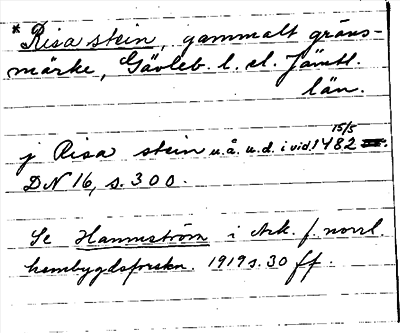 *Risa stein, gammalt gräns-
märke, Gävleb. l. el. Jämtl.
län.
j Risa stein u.å. u.d. i vid. 1482 15/5.
DN 16, s. 300.
Se Hammström i Ark. f. norrl.
hembygdsforskn. 1919 s. 30 ff.